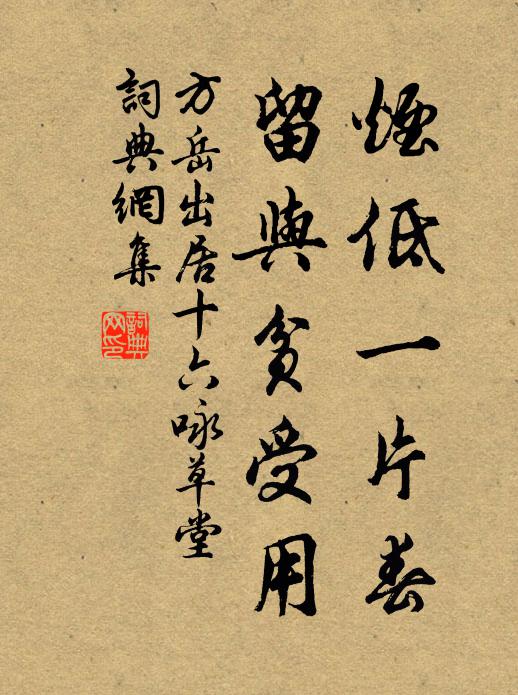 煙低一片春
留與貧受用
方岳出居十六咏草堂
詞典網集
詞典
网印